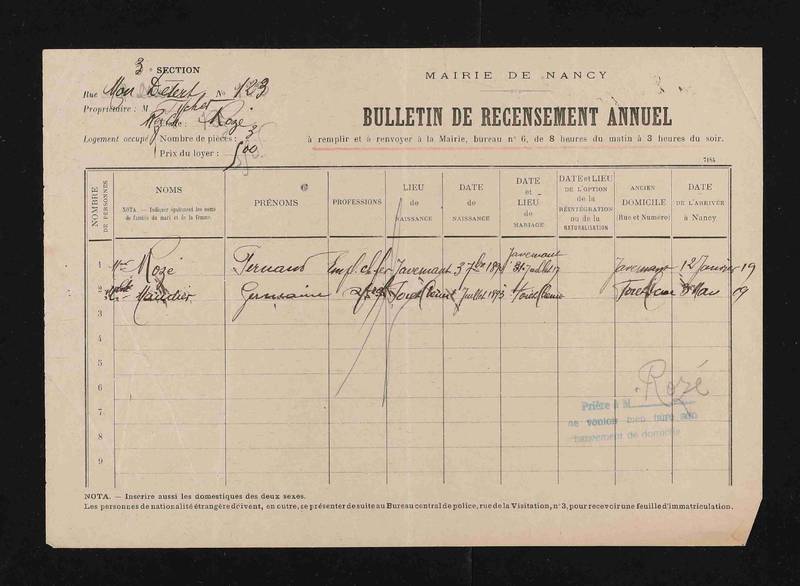 3e SECTION
Rue Mon Désert No 123
Propriétaire : M.
Rozé
Logement occupé Nombre de pièces : 3
Prix du loyer : 500
MAIRIE DE NANCY
BULLETIN DE RECENSEMENT ANNUEL
à remplir et à renvoyer à la Mairie, bureau n° 6, de 8 heures du matin à 3 heures du soir.
7184
NOMBRE DE PERSONNES
NOMS
NOTA. — Indiquer également les noms de famille du mari et de la femme.
PRÉNOMS
PROFESSIONS
LIEU de NAISSANCE
DATE de NAISSANCE
DATE et LIEU de MARIAGE
DATE et LIEU DE L'OPTION de la RÉINTÉGRATION ou de la NATURALISATION
ANCIEN DOMICILE (Rue et Numéro)
DATE DE L'ARRIVÉE à Nancy
1 Mr Rozé Fernand Empl. ch. fer 12 Janvier 19
2 Germaine Juillet 1893 Mai 19
3
4
5
6
7
8
9
Rozé
Prière à M
de vouloir bien faire son
changement de domicile
NOTA. — Inscrire aussi les domestiques des deux sexes.
Les personnes de nationalité étrangère doivent, en outre, se présenter de suite au Bureau central de police, rue de la Visitation, n° 3, pour recevoir une feuille d'immatriculation.